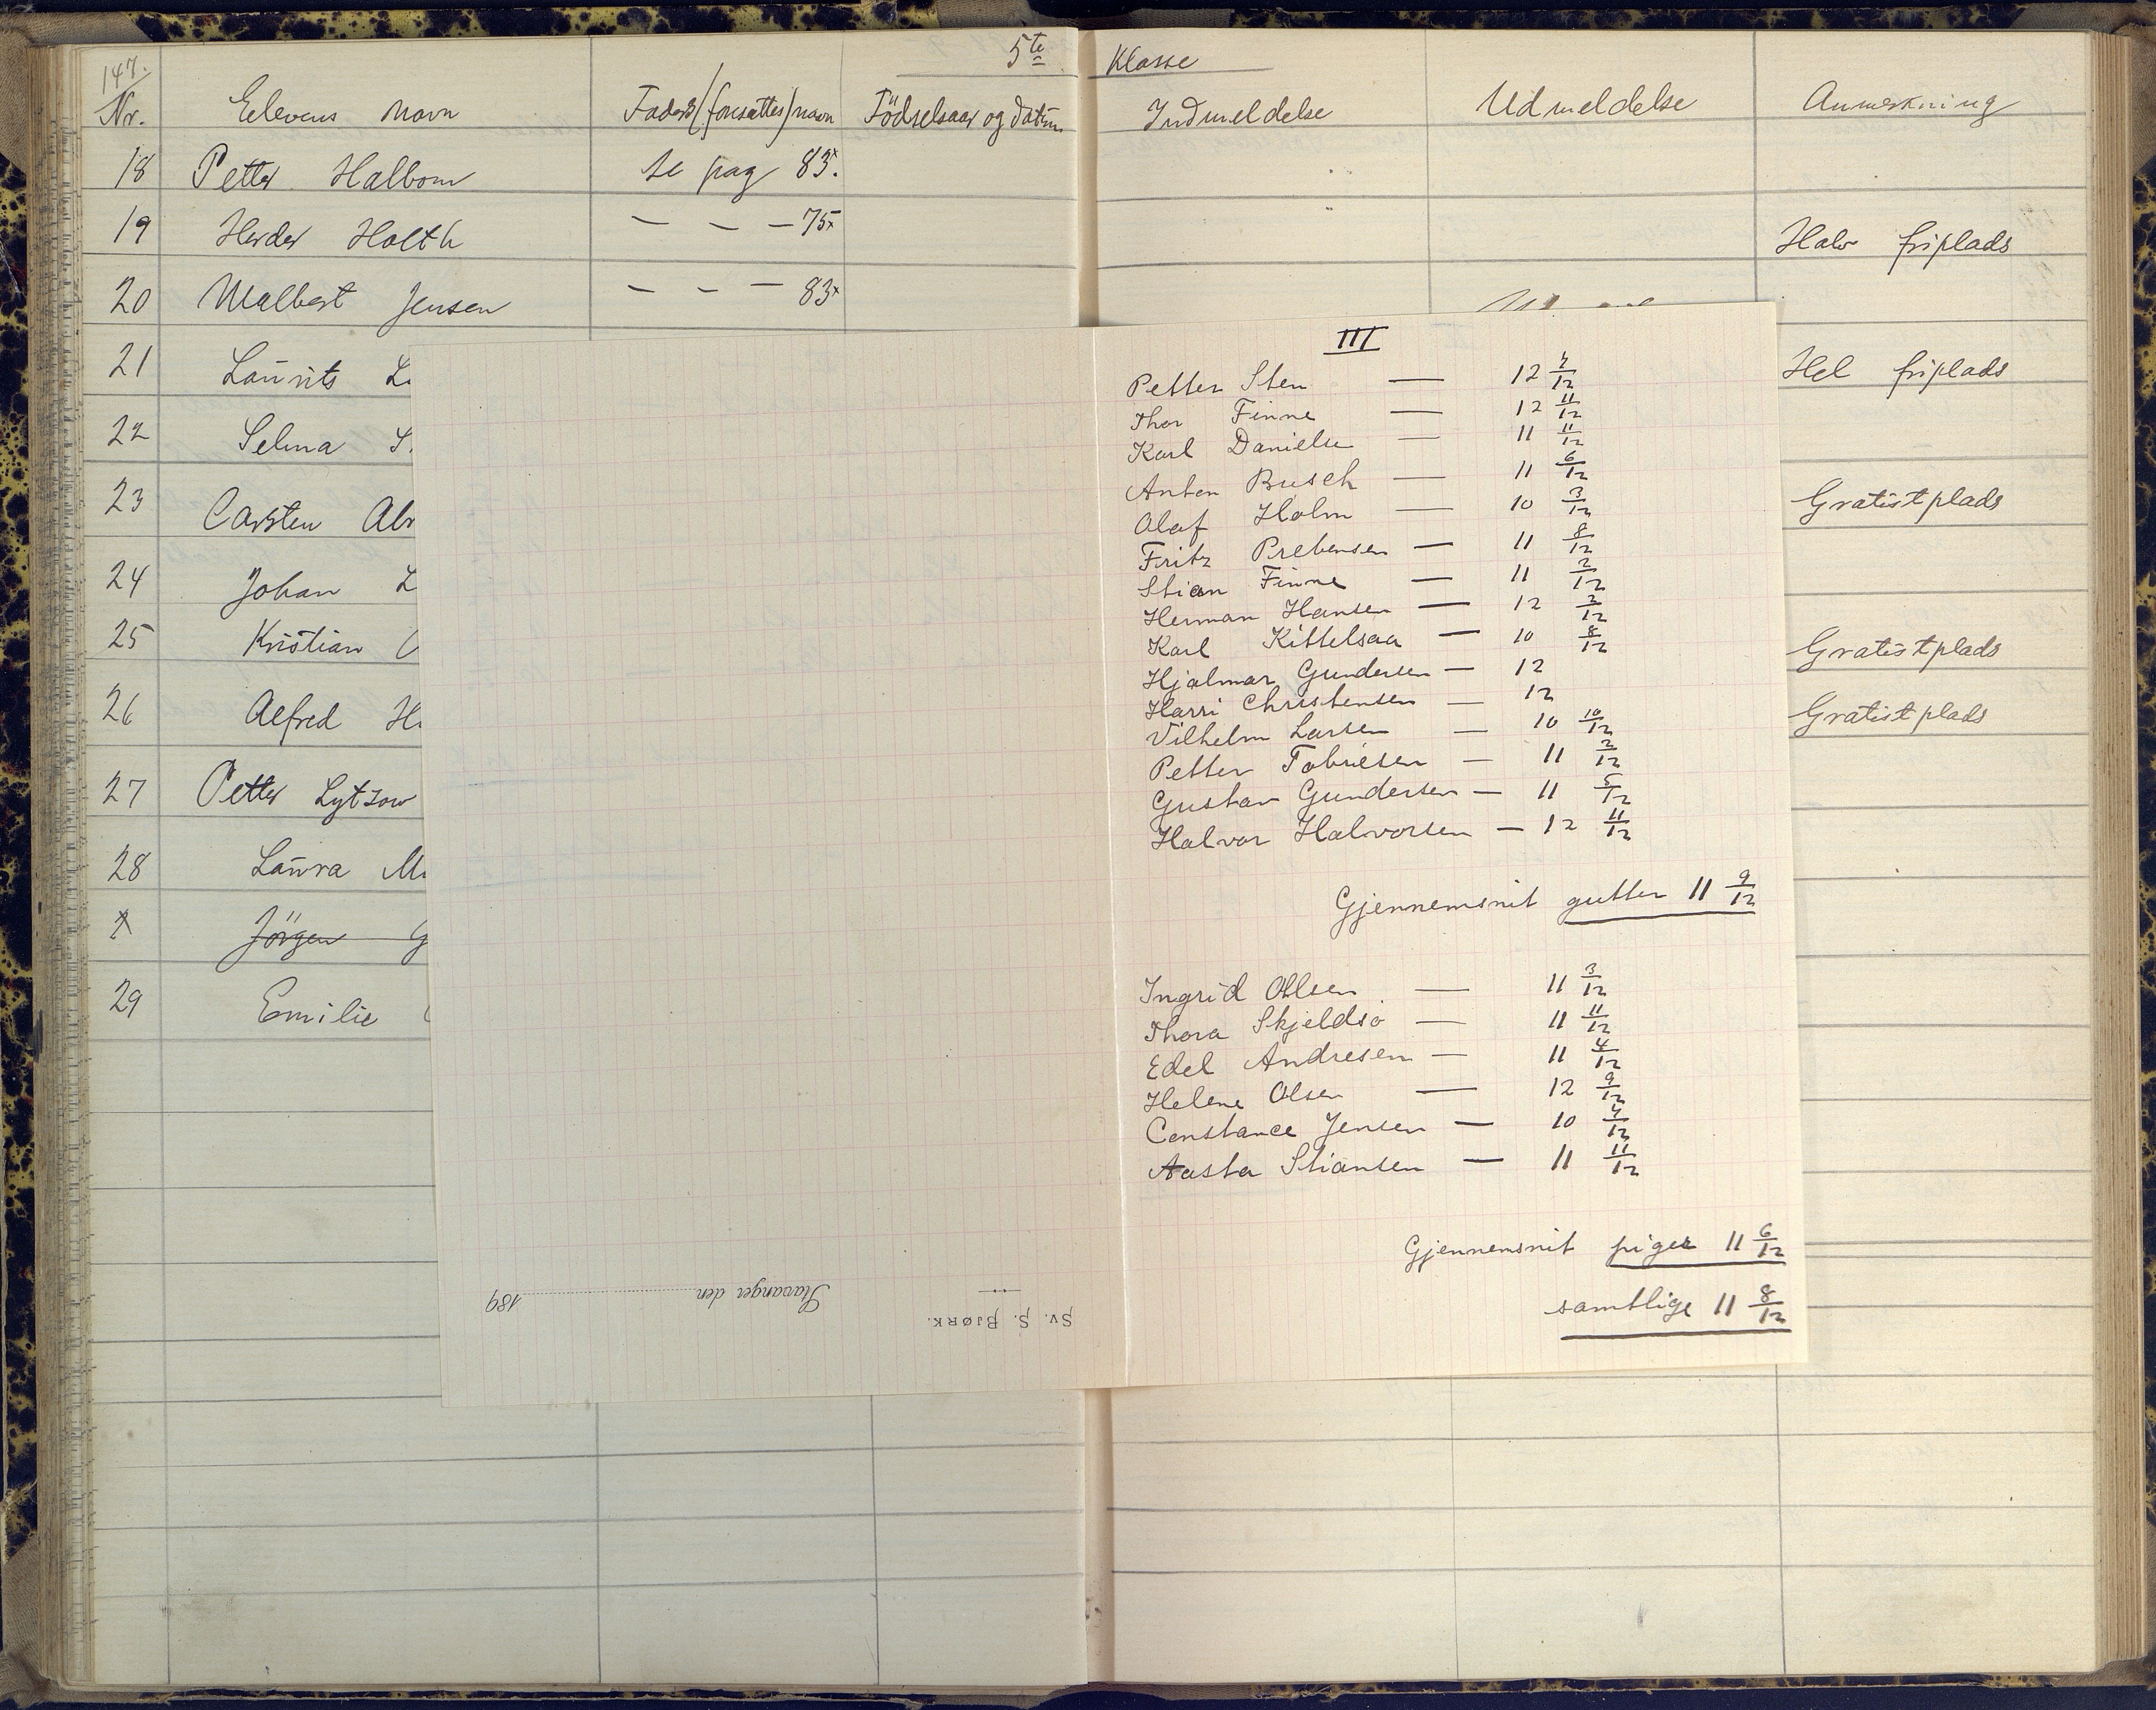 5te Klasse
147.
Nr. Elevens Navn Faders (foresattes) navn Födselsaar og Datum Indmeldelse Udmeldelse Anmerkning
18 Petter Halbom se pag 83x.
19 Herder Holth — — — 75x Halv friplads
20 Malbert Jensen — — — 83x
21 Laurits Hel friplads
22 Selma
23 Carsten Gratistplads
24 Johan
25 Kristian Gratistplads
26 Alfred Gratistplads
27 Petter Lytzow
28 Laura
Jörgen
29 Emilie
III
Petter Sten — 12
Thor Finne — 12 11/12
Karl Danielse — 11 11/12
Anton Busch — 11 6/12
Olaf Holm — 10 3/12
Fritz Prebensen — 11 8/12
Stian Finne — 11 2/12
Herman Hansen — 12 2/12
Karl Kittelsaa — 10 8/12
Hjalmar Gundersen — 12
Harri Christensen — 12
Vilhelm Larsen — 10 10/12
Petter Tobiesen — 11 2/12
Gustav Gundersen — 11 5/12
Halvor Halvorsen — 12 11/12
Gjennemsnit gutter 11 9/12
Ingrid Ohlsen — 11 3/12
Thora Skjeldsö — 11 11/12
Edel Andresen — 11 4/12
Helene Olsen — 12 9/12
Constance Jensen — 10 4/12
Aasta Stiansen — 11 11/12
Gjennemsnit piger 11 6/12
samtlige 11 8/12
Sv. S. Bjørk.
Stavanger den 189